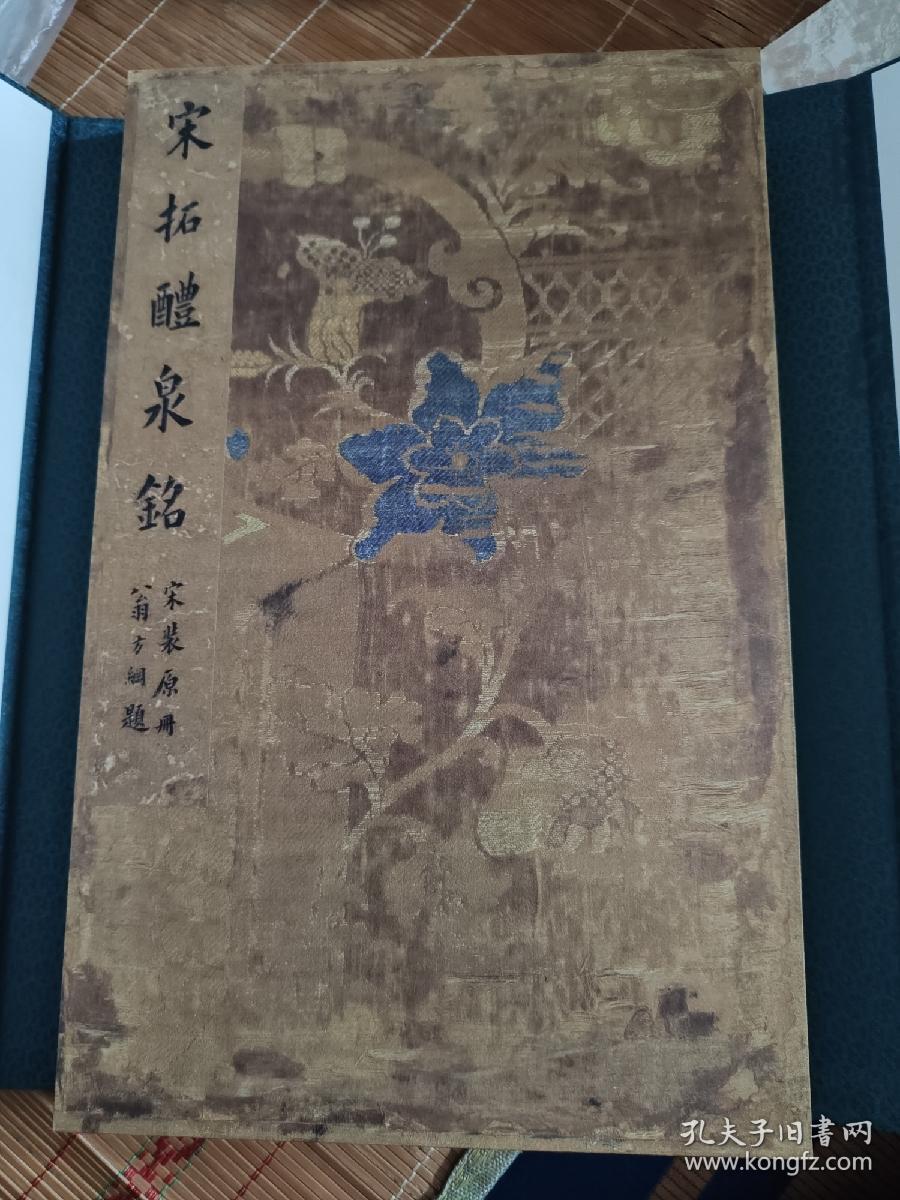 宋拓醴泉銘
宋裝原冊
翁方綱題
孔夫子旧書网
www.kongfz.com